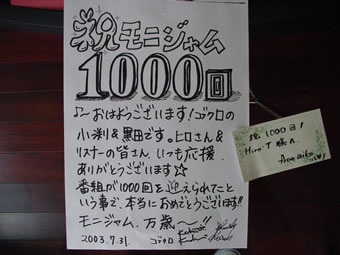 祝モニジャム
1000回
♪~おはようございます!ゴヅクロの
小渕&黒田です。ヒロさん&
リスナーの皆さん、いつも応援
ありがとうございます☆
番組が1000回を迎えられたと
いう事で、本当におめでとうございます!!
モニジャム、万歳~!!
2003.7.31.
祝1000回!
Hiro.T様へ